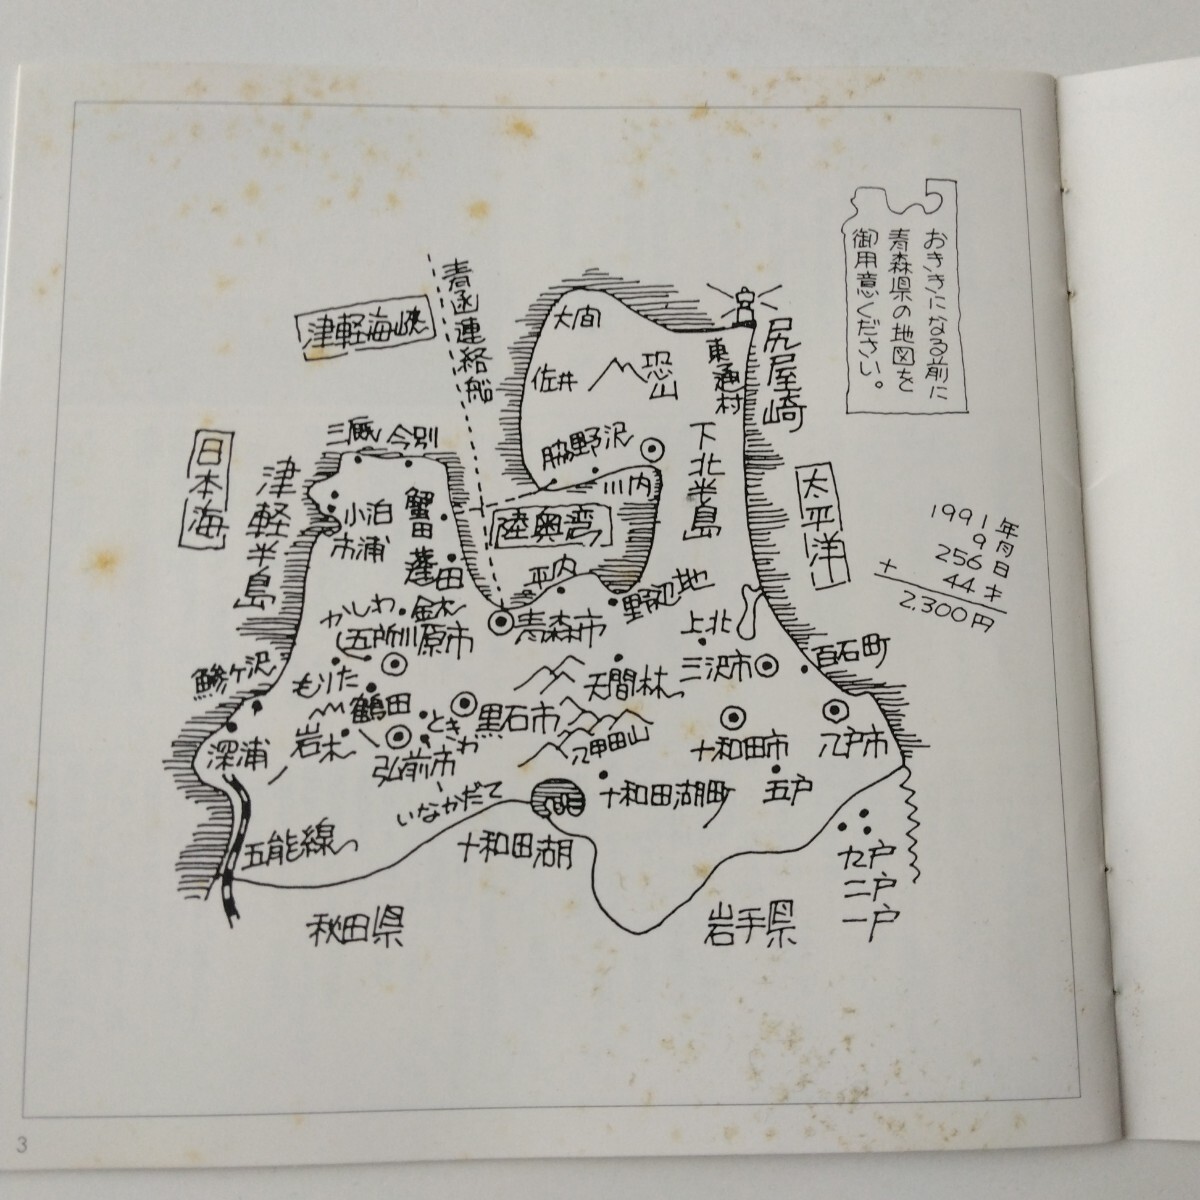 おききになる前に
青森県の地図を
御用意ください。
青函連絡船
津軽海峡
大間
尻屋崎
東通村
佐井
恐山
脇野沢
川内
下北半島
三厩
今別
日本海
津軽半島
小泊
市浦
蟹田
蓬田
陸奥湾
平内
野辺地
太平洋
1991年
9月
256日
+ 44才
2,300円
かしわ
金木
五所川原市
青森市
上北
三沢市
百石町
天間林
鰺ケ沢
もりた
鶴田
ときわ
黒石市
深浦
岩木
弘前市
八甲田山
十和田市
八戸市
いなかだて
十和田湖町
五戸
五能線
十和田湖
九戸
二戸
一戸
秋田県
岩手県
3